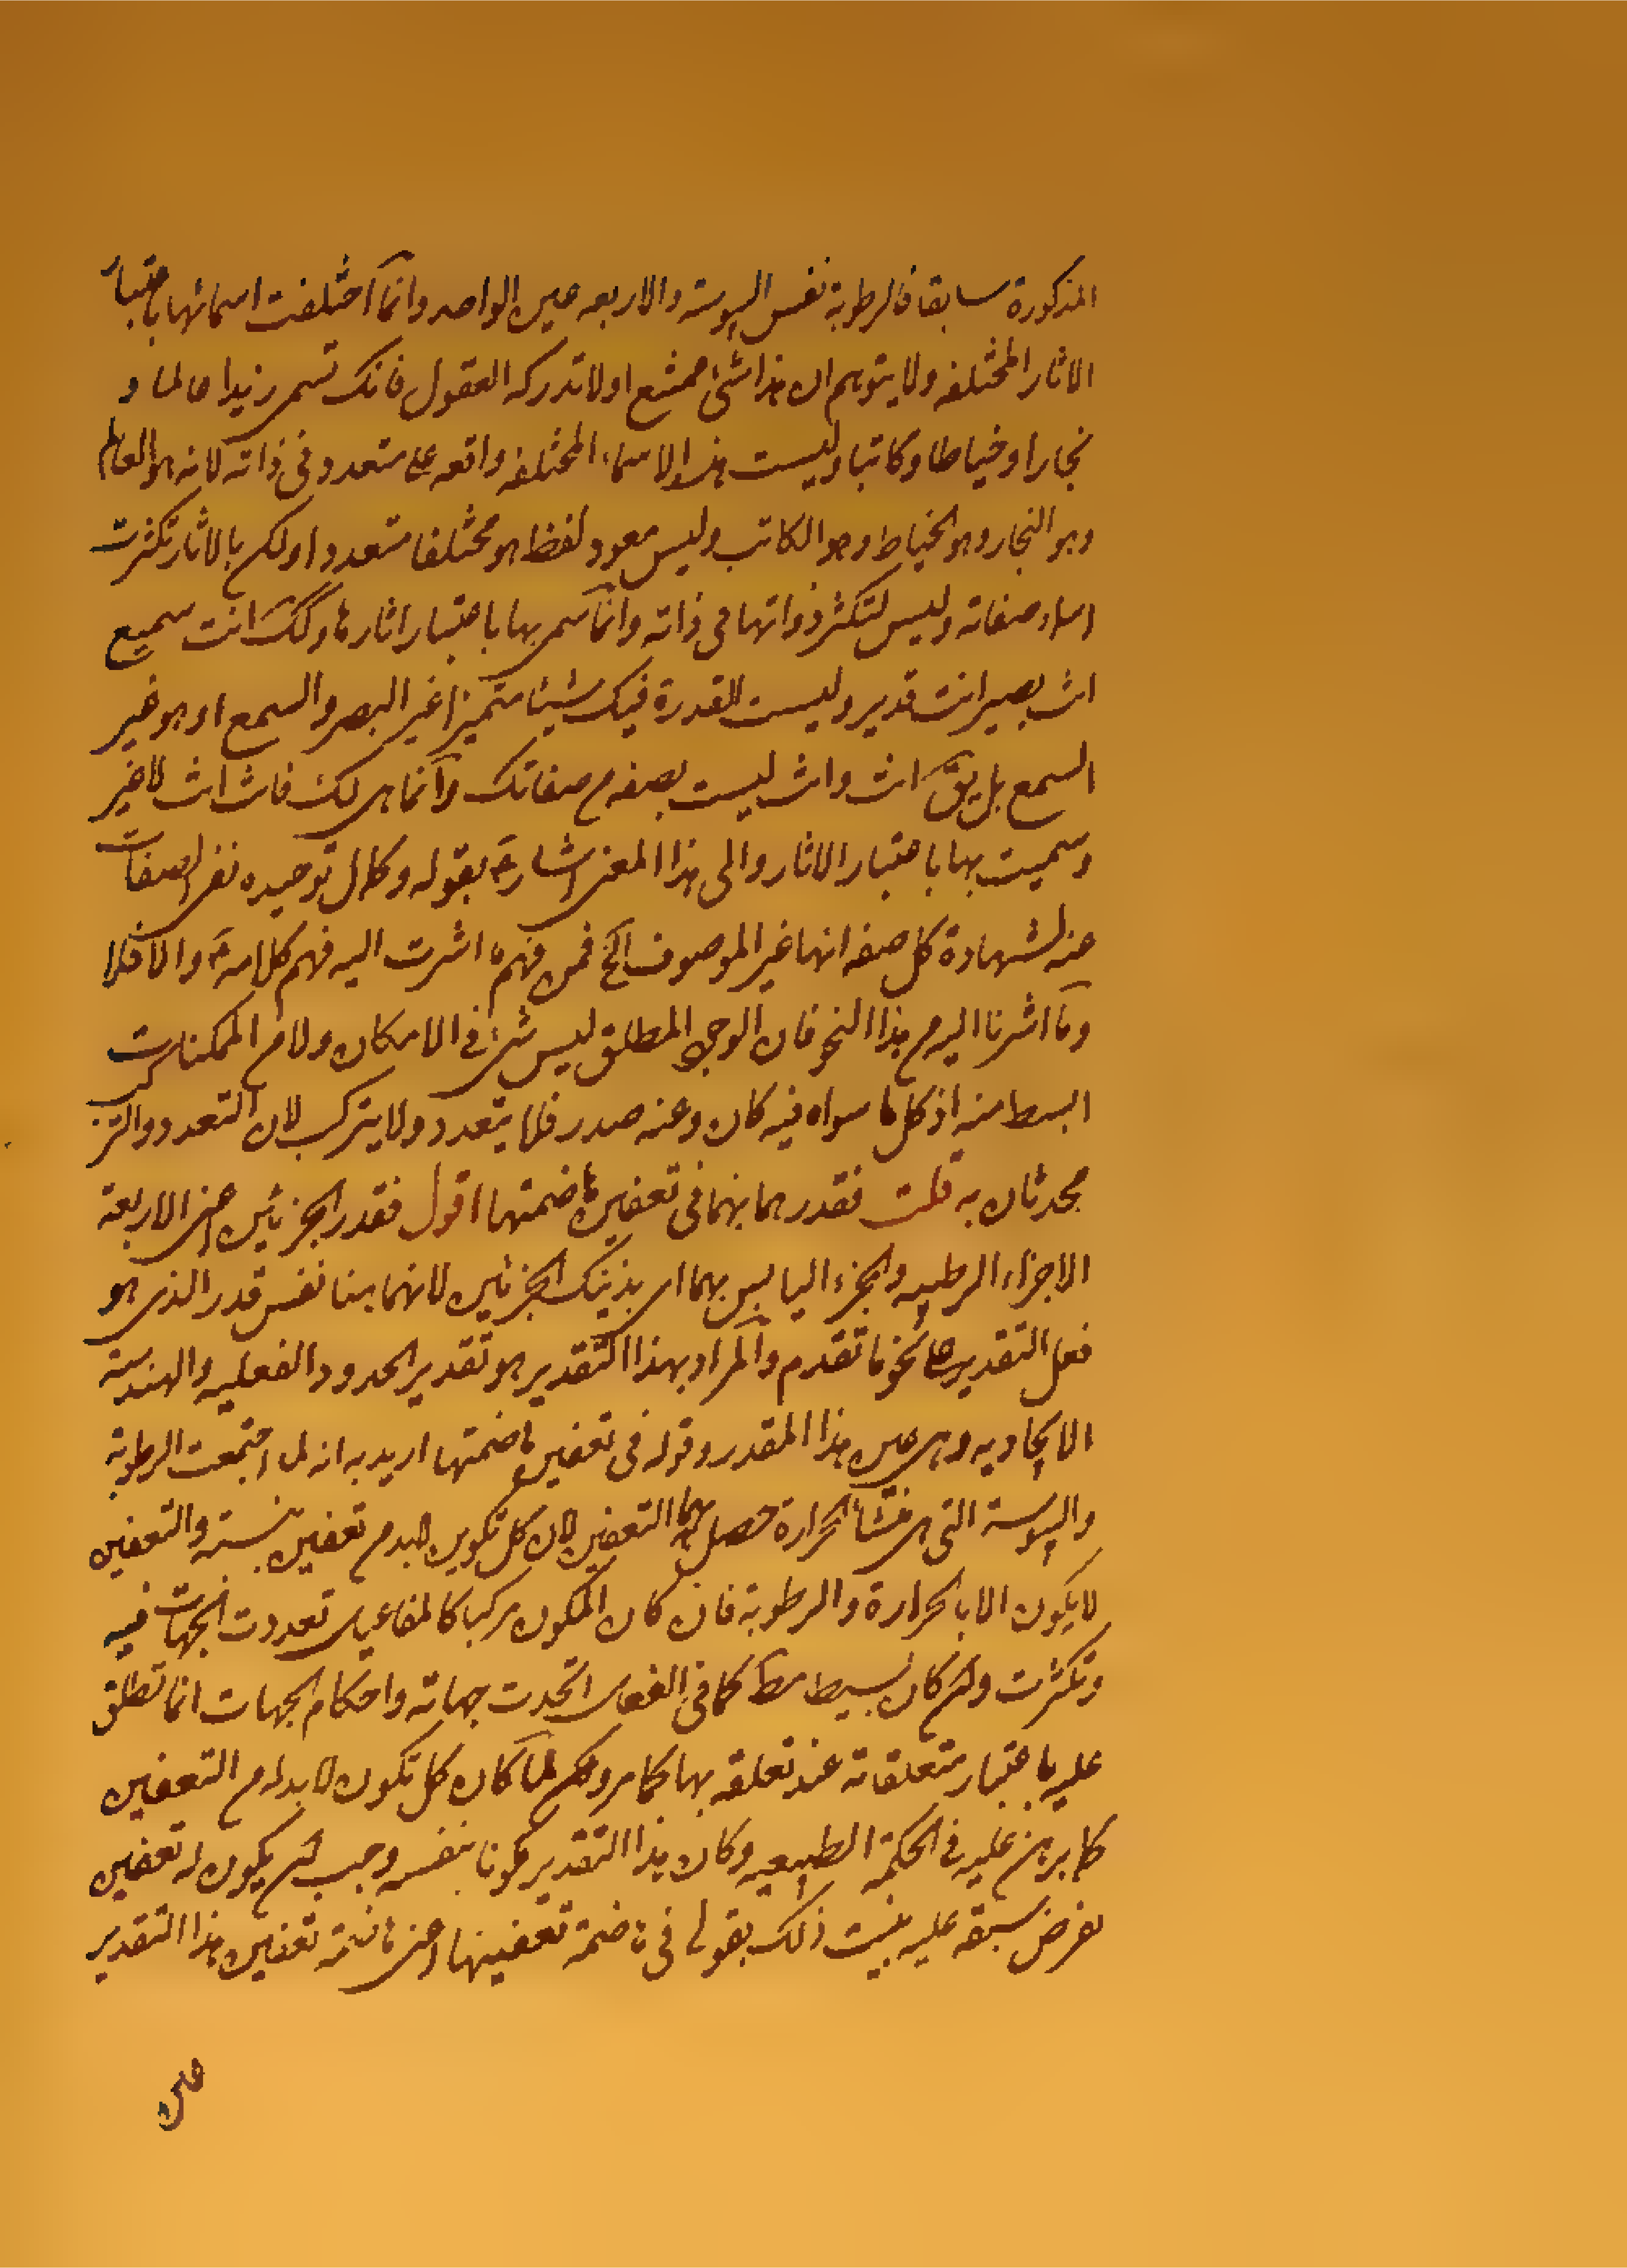 المذكورة سابقا فالرطوبة نفس اليبوسة والاربعه عين الواحد وانما اختلفت اسمائها باعتبار
الاثار المختلفه ولا يتوهم ان هذا شئ ممتنع اولا تدركه العقول فانك تسمى زيدا عالما و
نجارا وخياطا وكاتبا وليست هذه الاسماء المختلفه واقعه على متعدد فى ذاته لانه هو العالم
وهو النجار وهو الخياط وهو الكاتب وليس معود لفظ هو مختلفا متعددا ولكن بالاثار تكثرت
اسماء صفاته وليس لتكثر ذواتها فى ذاته وانما سمى بها باعتبار اثارها وكك انت سميع
انت بصير انت قدير وليست القدرة فيك شيئا متميزا غير البصر والسمع او هو غير
السمع بل يق انت وانت ليست بصفه من صفاتك وانما هى لك فانت انت لا غير
وسميت بها باعتبار الاثار والى هذا المعنى اشار ع بقوله وكمال توحيده نفى الصفات
عنه لشهادة كل صفه انها غير الموصوف الخ فمن فهم ما اشرت اليه فهم كلامه ع والا فلا
وما اشرنا اليه من هذا النحو فان الوجود المطلق ليس شئ فى الامكان ولا من الممكنات
ابسط منه اذ كل ما سواه فيه كان وعنه صدر فلا يتعدد ولا يتركب لان التعدد والتركب
محدثان به قلت فقدرهما بهما فى تعفين هاضمتها اقول فقدر الجزئين اعنى الاربعة
الاجزاء الرطبيه والجزء اليابس بهما اى بذينك الجزئين لانهما هنا نفس قدر الذى هو
فعل التقدير على نحو ما تقدم والمراد بهذا التقدير هو تقدير الحدود الفعليه والهندسة
الايجاديه وهى عين هذا المقدر وقوله فى تعفين هاضمتها اريد به انه لما اجتمعت الرطوبة
واليبوسة التى هى منشأ الحرارة حصل بهما التعفين لان كل تكوين لابد من تعفين بنسبته والتعفين
لا يكون الا بالحرارة والرطوبة فان كان المكون مركبا كالمفاعيل تعددت الجهات فيه
وتكثرت وان كان بسيط مط كما فى الفعل اتحدت جهاته واحكام الجهات انما تطلق
عليه باعتبار متعلقاته عند تعلقه بها كما مر وهكم لما كان كل تكون لابد له من التعفين
كما برهن عليه فى الحكمة الطبيعيه وكان هذا التقدير مكونا بنفسه وجب ان يكون له تعفين
بفرض سبقه عليه بينت ذلك بقولى فى هاضمة تعفينها اعنى هاضمة تعفين هذا التقدير